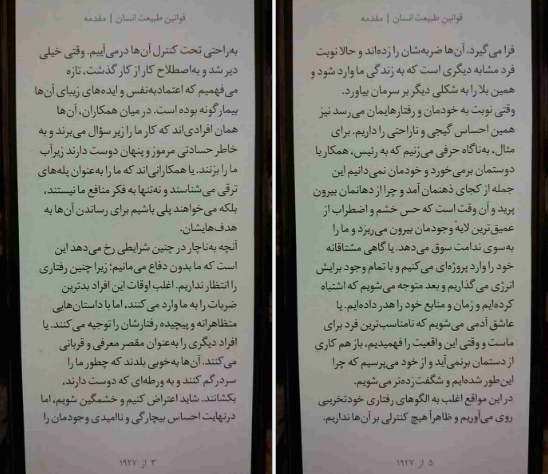 قوانین طبیعت انسان | مقدمه
به‌راحتی تحت کنترل آن‌ها درمی‌آییم. وقتی خیلی
دیر شد و به‌اصطلاح کار از کار گذشت، تازه
می‌فهمیم که اعتمادبه‌نفس و ایده‌های زیبای آن‌ها
بیمارگونه بوده است. در میان همکاران، آن‌ها
همان افرادی‌اند که کار ما را زیر سؤال می‌برند و به
خاطر حسادتی مرموز و پنهان دوست دارند زیرآب
ما را بزنند. یا همکارانی‌اند که ما را به‌عنوان پله‌های
ترقی می‌شناسند و نه‌تنها به فکر منافع ما نیستند،
بلکه می‌خواهند پلی باشیم برای رساندن آن‌ها به
هدف‌هایشان.
آنچه به‌ناچار در چنین شرایطی رخ می‌دهد این
است که ما بدون دفاع می‌مانیم؛ زیرا چنین رفتاری
را انتظار نداریم. اغلب اوقات این افراد بدترین
ضربات را به ما وارد می‌کنند، اما با داستان‌هایی
متظاهرانه و پیچیده رفتارشان را توجیه می‌کنند. یا
افراد دیگری را به‌عنوان مقصر معرفی و قربانی
می‌کنند. آن‌ها به‌خوبی بلدند که چطور ما را
سردرگم کنند و به ورطه‌ای که دوست دارند،
بکشانند. شاید اعتراض کنیم و خشمگین شویم، اما
درنهایت احساس بیچارگی و ناامیدی وجودمان را
۳ از ۱۹۲۷
قوانین طبیعت انسان | مقدمه
فرا می‌گیرد. آن‌ها ضربه‌شان را زده‌اند و حالا نوبت
فرد مشابه دیگری است که به زندگی ما وارد شود و
همین بلا را به شکلی دیگر بر سرمان بیاورد.
وقتی نوبت به خودمان و رفتارهایمان می‌رسد نیز
همین احساس گیجی و ناراحتی را داریم. برای
مثال، به‌ناگاه حرفی می‌زنیم که به رئیس، همکار یا
دوستمان برمی‌خورد و خودمان نمی‌دانیم این
جمله از کجای ذهنمان آمد و چرا از دهانمان بیرون
پرید و آن وقت است که حس خشم و اضطراب از
عمیق‌ترین لایهٔ وجودمان بیرون می‌ریزد و ما را
به‌سوی ندامت سوق می‌دهد. یا گاهی مشتاقانه
خود را وارد پروژه‌ای می‌کنیم و با تمام وجود برایش
انرژی می‌گذاریم و بعد متوجه می‌شویم که اشتباه
کرده‌ایم و زمان و منابع خود را هدر داده‌ایم. یا
عاشق آدمی می‌شویم که نامناسب‌ترین فرد برای
ماست و وقتی این واقعیت را فهمیدیم، باز هم کاری
از دستمان برنمی‌آید و از خود می‌پرسیم که چرا
این‌طور شده‌ایم و شگفت‌زده‌تر می‌شویم.
در این مواقع اغلب به الگوهای رفتاری خودتخریبی
روی می‌آوریم و ظاهراً هیچ کنترلی بر آن‌ها نداریم.
۵ از ۱۹۲۷